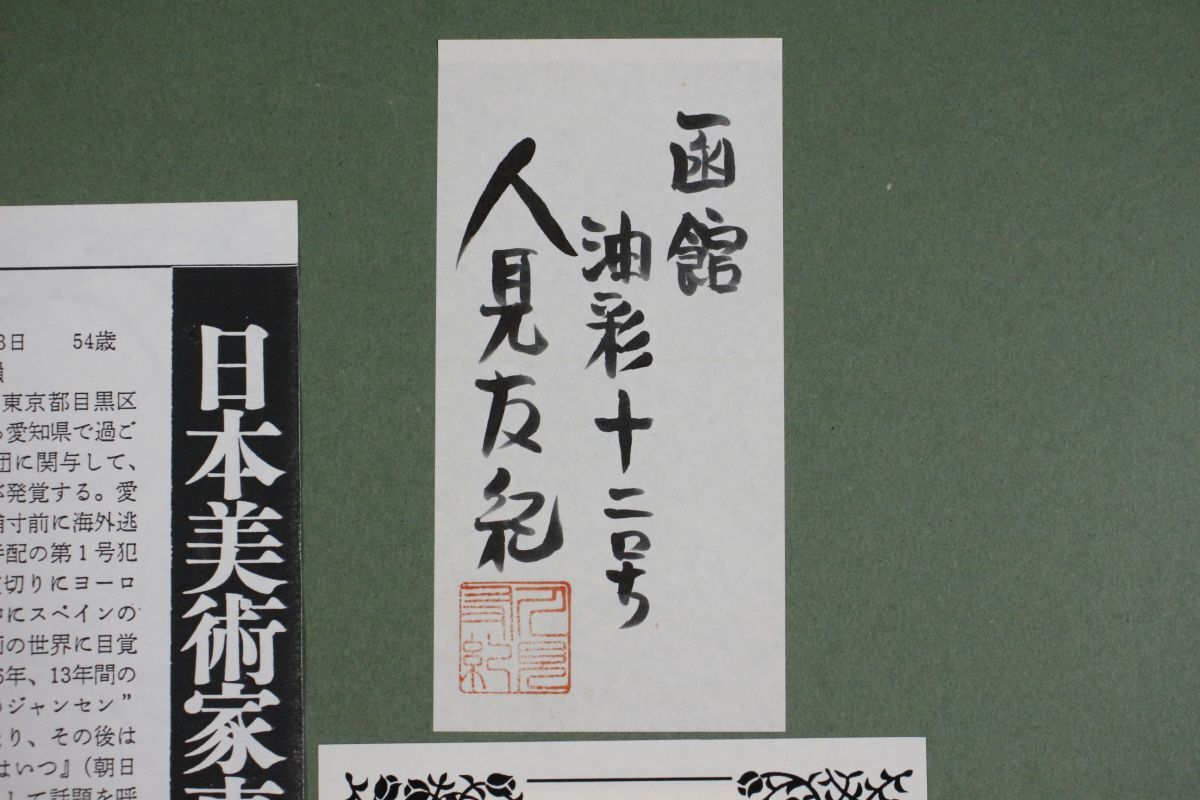 函館
油彩十二号
人見友紀
人見友紀
日本美術家
3日 54歳
東京都目黒区
愛知県で過ご
団に関与して、
発覚する。愛
寸前に海外逃
手配の第1号犯
切りにヨーロ
にスペインの
の世界に目覚
6年、13年間の
のジャンセン”
たり、その後は
はいつ』(朝日
して話題を呼